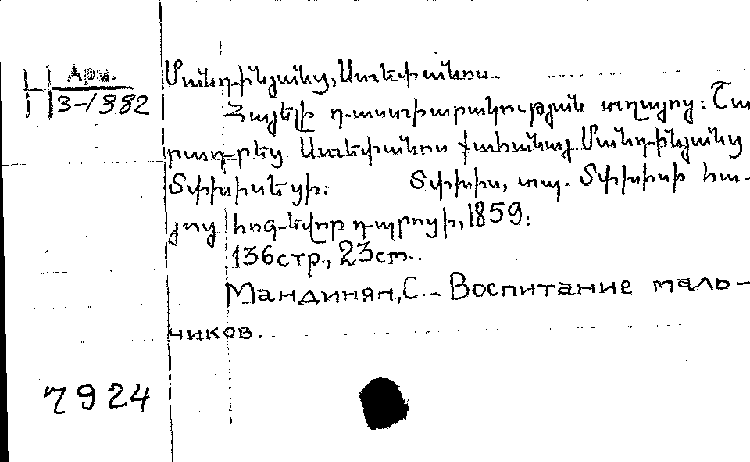 Арм.
3-/882
Մանդինյանց, Ստեփանոս
Հայելի դաստիարակության տղայոց: Շա-
րադրեց Ստեփանոս քահանայ Մանդինյանց
Տփխիսեցի: Տփխիս, տպ. Տփխիսի հա-
յոց հոգևվոր դպրոցի, 1859:
136стр., 23см.
Мандинян, С. - Воспитание маль-
чиков.
7924